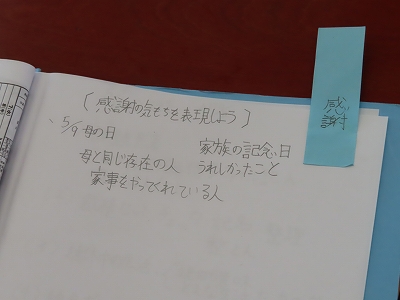 〔感謝の気もちを表現しよう〕
5/9 母の日
母と同じ存在の人
家事をやってくれている人
家族の記念日
うれしかったこと
感
謝